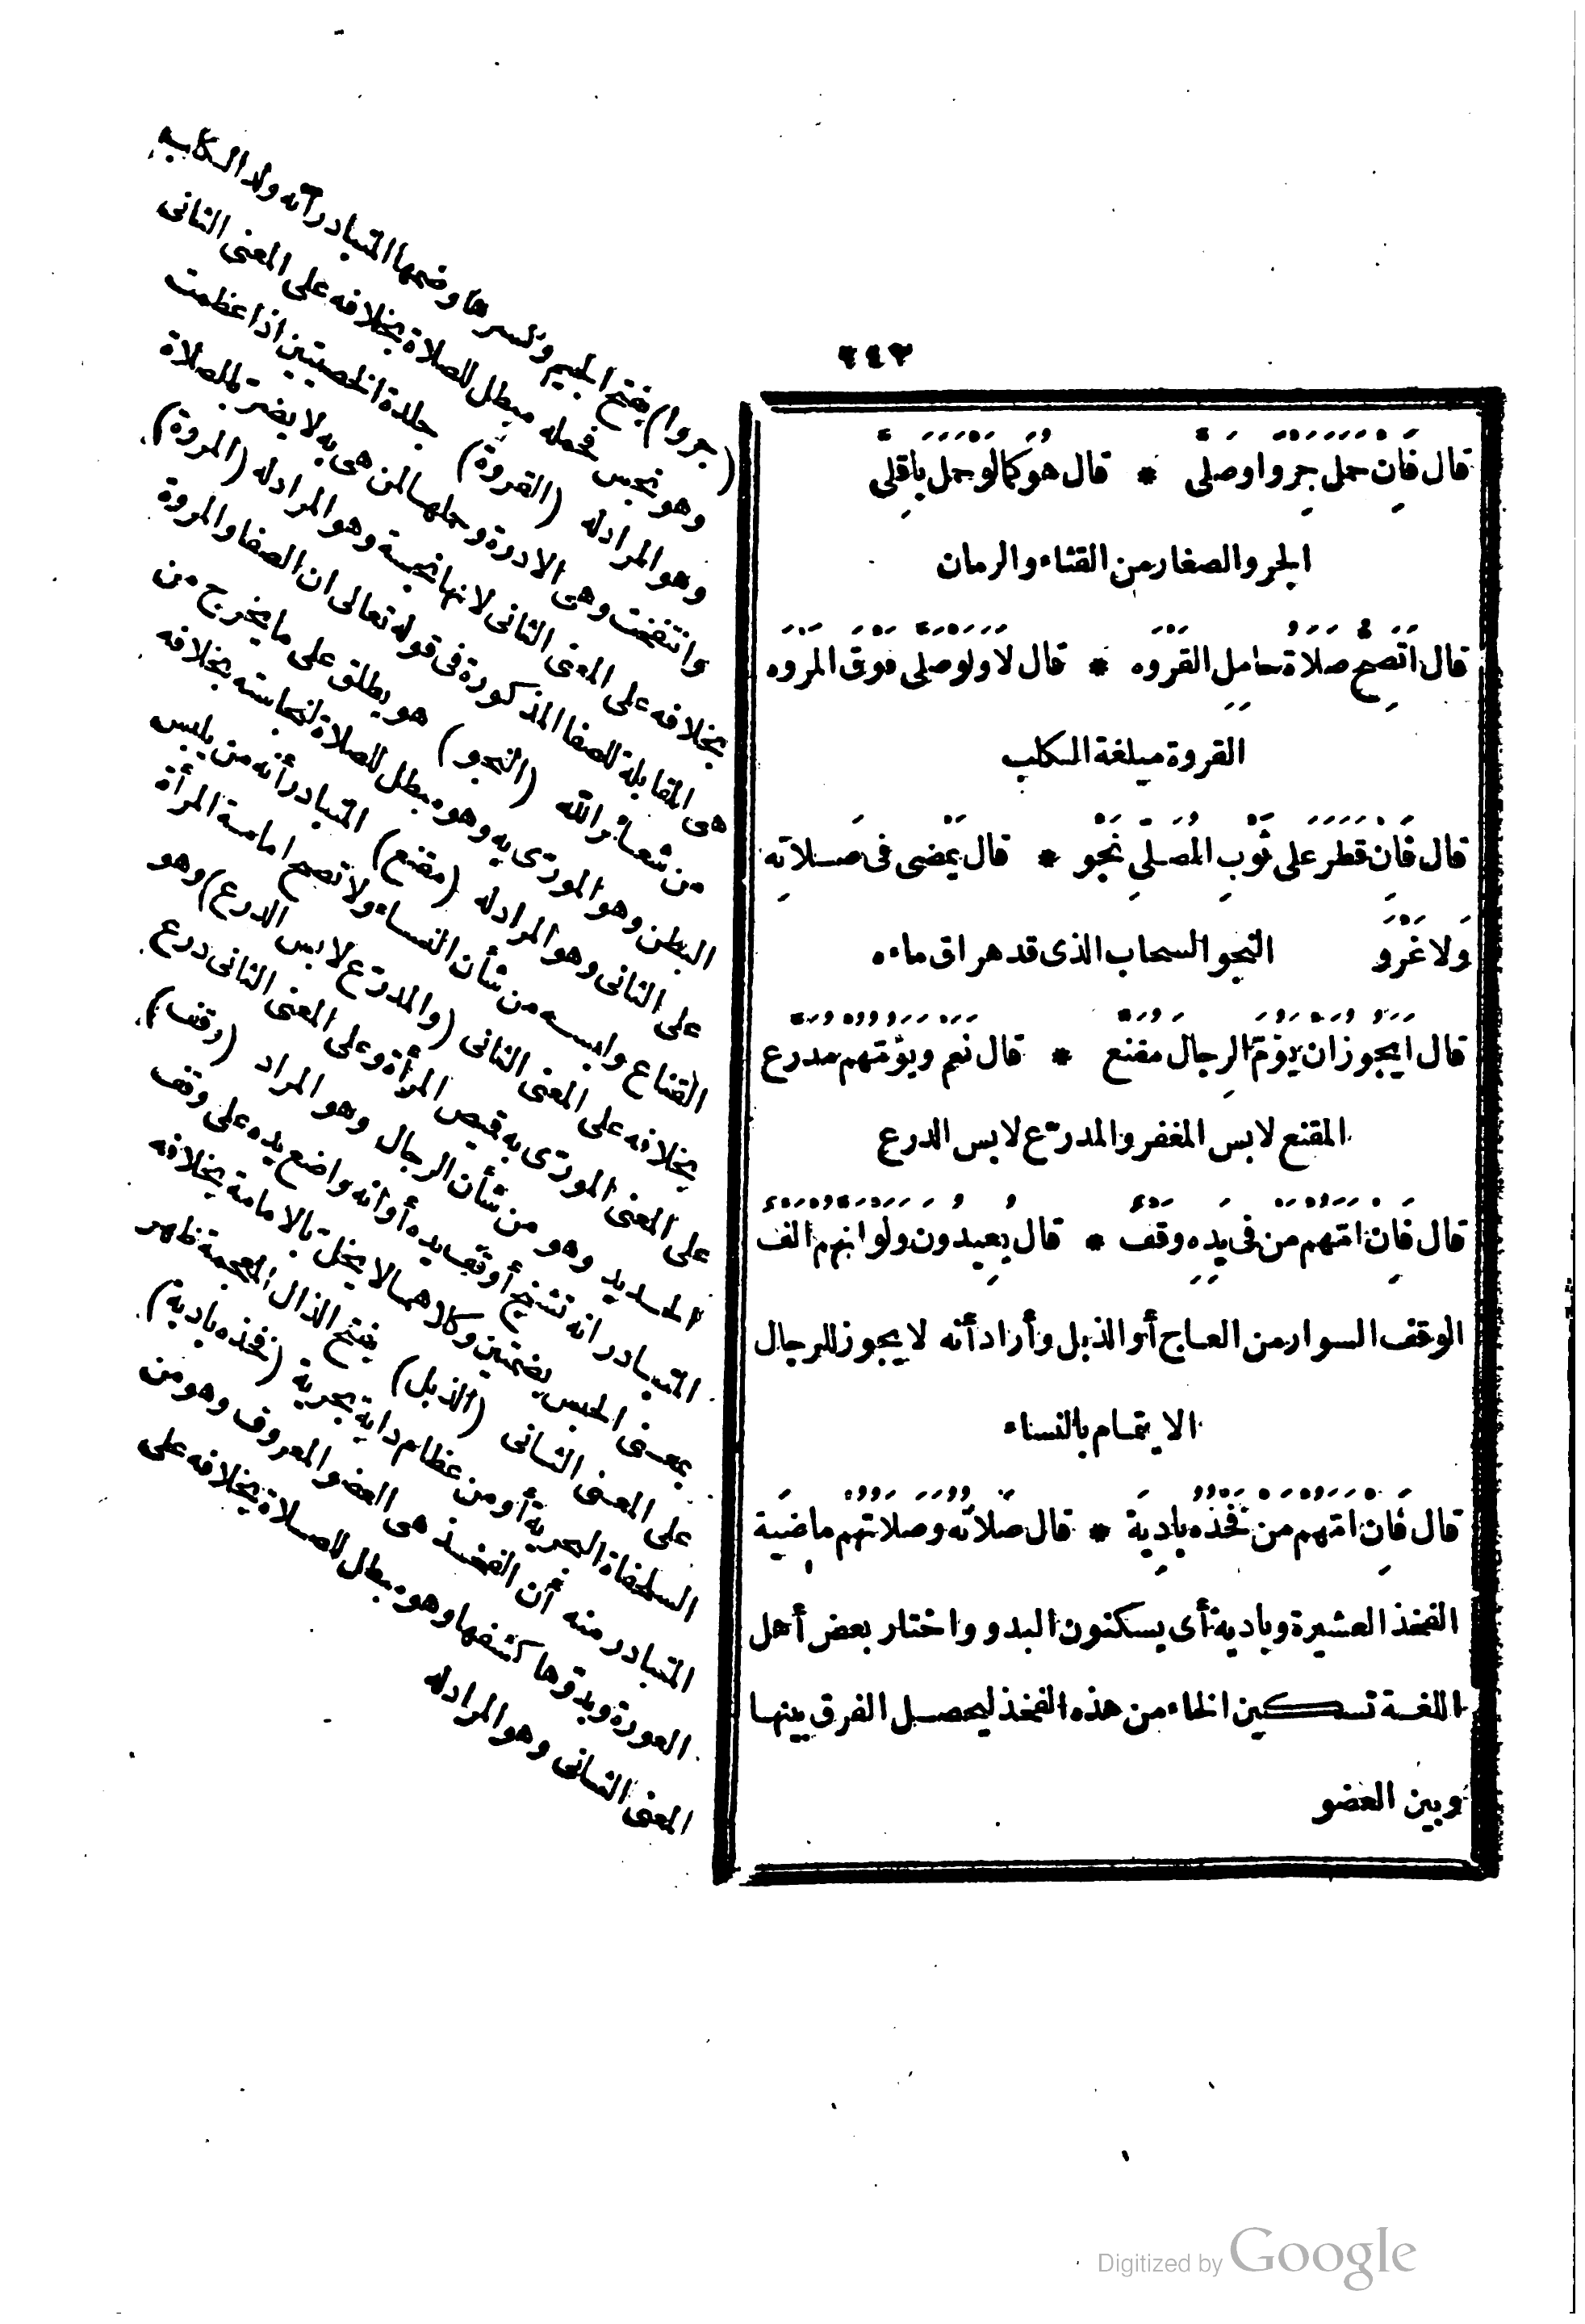 ٣٤٢
قال فَإن حمل جِروا وصلَّى * قال هُو كَمَا لو حمل بَاقِلَّى
الجرو الصغار من القثاء والرمان
قال أتَصِحُّ صلاةُ حامِلِ القَروه * قال لا ولو صلَّى فَوْقَ المَرْوه
القروة ميلغة الكلب
قال فَإن قطر على ثَوْبِ المُصلّى نَجْو * قال يَمْضى فى صَلاتِه
وَلا غَرْوَ النجو السحاب الذى قد هراق ماءه
قال أيجوز ان يؤمّ الرجال مقنّع * قال نعم ويؤمّهم مدرّع
المقنع لابس المغفر والمدرّع لابس الدرع
قال فَإن امّهم من فى يَدِهِ وقفٌ * قال يُعِيدُون ولو انهم الف
الوقف السوار من العاج أو الذبل وأراد أنه لا يجوز للرجال
الايتمام بالنساء
قال فَإن امّهم من فخذُه بادِيَة * قال صَلاتُه وصلاتُهم ماضِيَة
الفخذ العشيرة وبادية أى يسكنون البدو واختار بعض أهل
اللغة تسكين الخاء من هذه الفخذ ليحصل الفرق بينها
وبين العضو
(جروا) بفتح الجيم وكسرها وضمها المتبادر أنه ولد الكلب
وهو نجس فحمله مبطل للصلاة بخلافه على المعنى الثانى
وهو المراد له (القروة) جلدة الخصيتين اذا عظمت
وانتفخت وهى الادرة وحملها لمن هى به لا يضر بالصلاة
بخلافه على المعنى الثانى لانها نجسة وهو المراد له (المروة)
هى المقابلة للصفا المذكورة فى قوله تعالى ان الصفا والمروة
من شعائر الله (النجو) هو يطلق على ما يخرج من
البطن وهو المورّى به وهو مبطل للصلاة لنجاسته بخلافه
على الثانى وهو المراد له (مقنع) المتبادر أنه من يلبس
القناع ولبسه من شأن النساء ولا تصح امامة المرأة
بخلافه على المعنى الثانى (والمدرّع لابس الدرع) وهو
على المعنى المورّى به قميص المرأة وعلى المعنى الثانى درع
الحديد وهو من شأن الرجال وهو المراد (وقف)
المتبادر انه تشنج أوقف يده أو انه واضع يده على وقف
بمعنى الحبس بضمتين وكلاهما لا يخلّ بالامامة بخلافه
على المعنى الثانى (الذبل) بفتح الذال المعجمة ظهر
السلحفاة البحرية أو من عظام دابة بحرية (فخذه بادية)
المتبادر منه أن الفخذ هى العضو المعروف وهو من
العورة وبدوّها كشفها وهو مبطل للصلاة بخلافه على
المعنى الثانى وهو المراد له
Digitized by Google